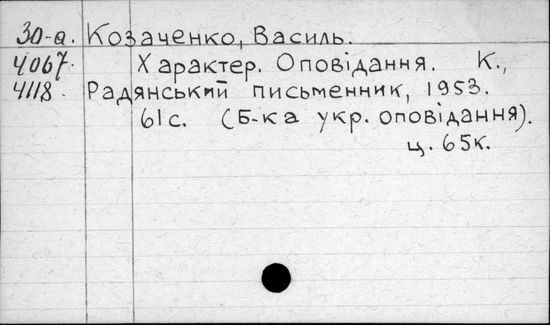 30-а. Козаченко, Василь.
4067. Характер. Оповідання. К.,
4118. Радянський письменник, 1953.
61с. (Б-ка укр. оповідання).
ц. 65к.